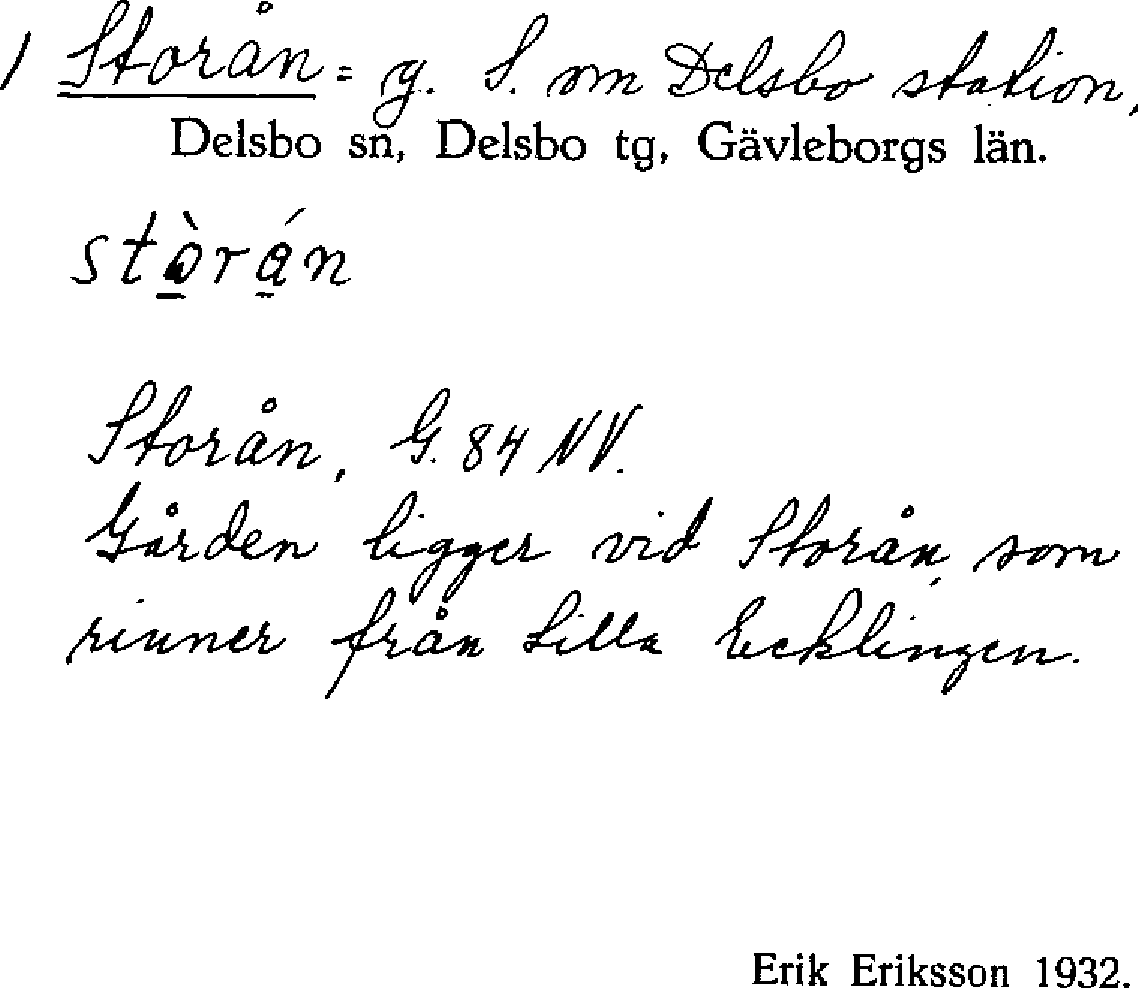 1 Storån = g. S. om Delsbo station,
Delsbo sn, Delsbo tg, Gävleborgs län.
stò̱rá̱n
Storån, G. 84 NV.
Gården ligger vid Storån, som
rinner från Lilla Ecklingen.
Erik Eriksson 1932.